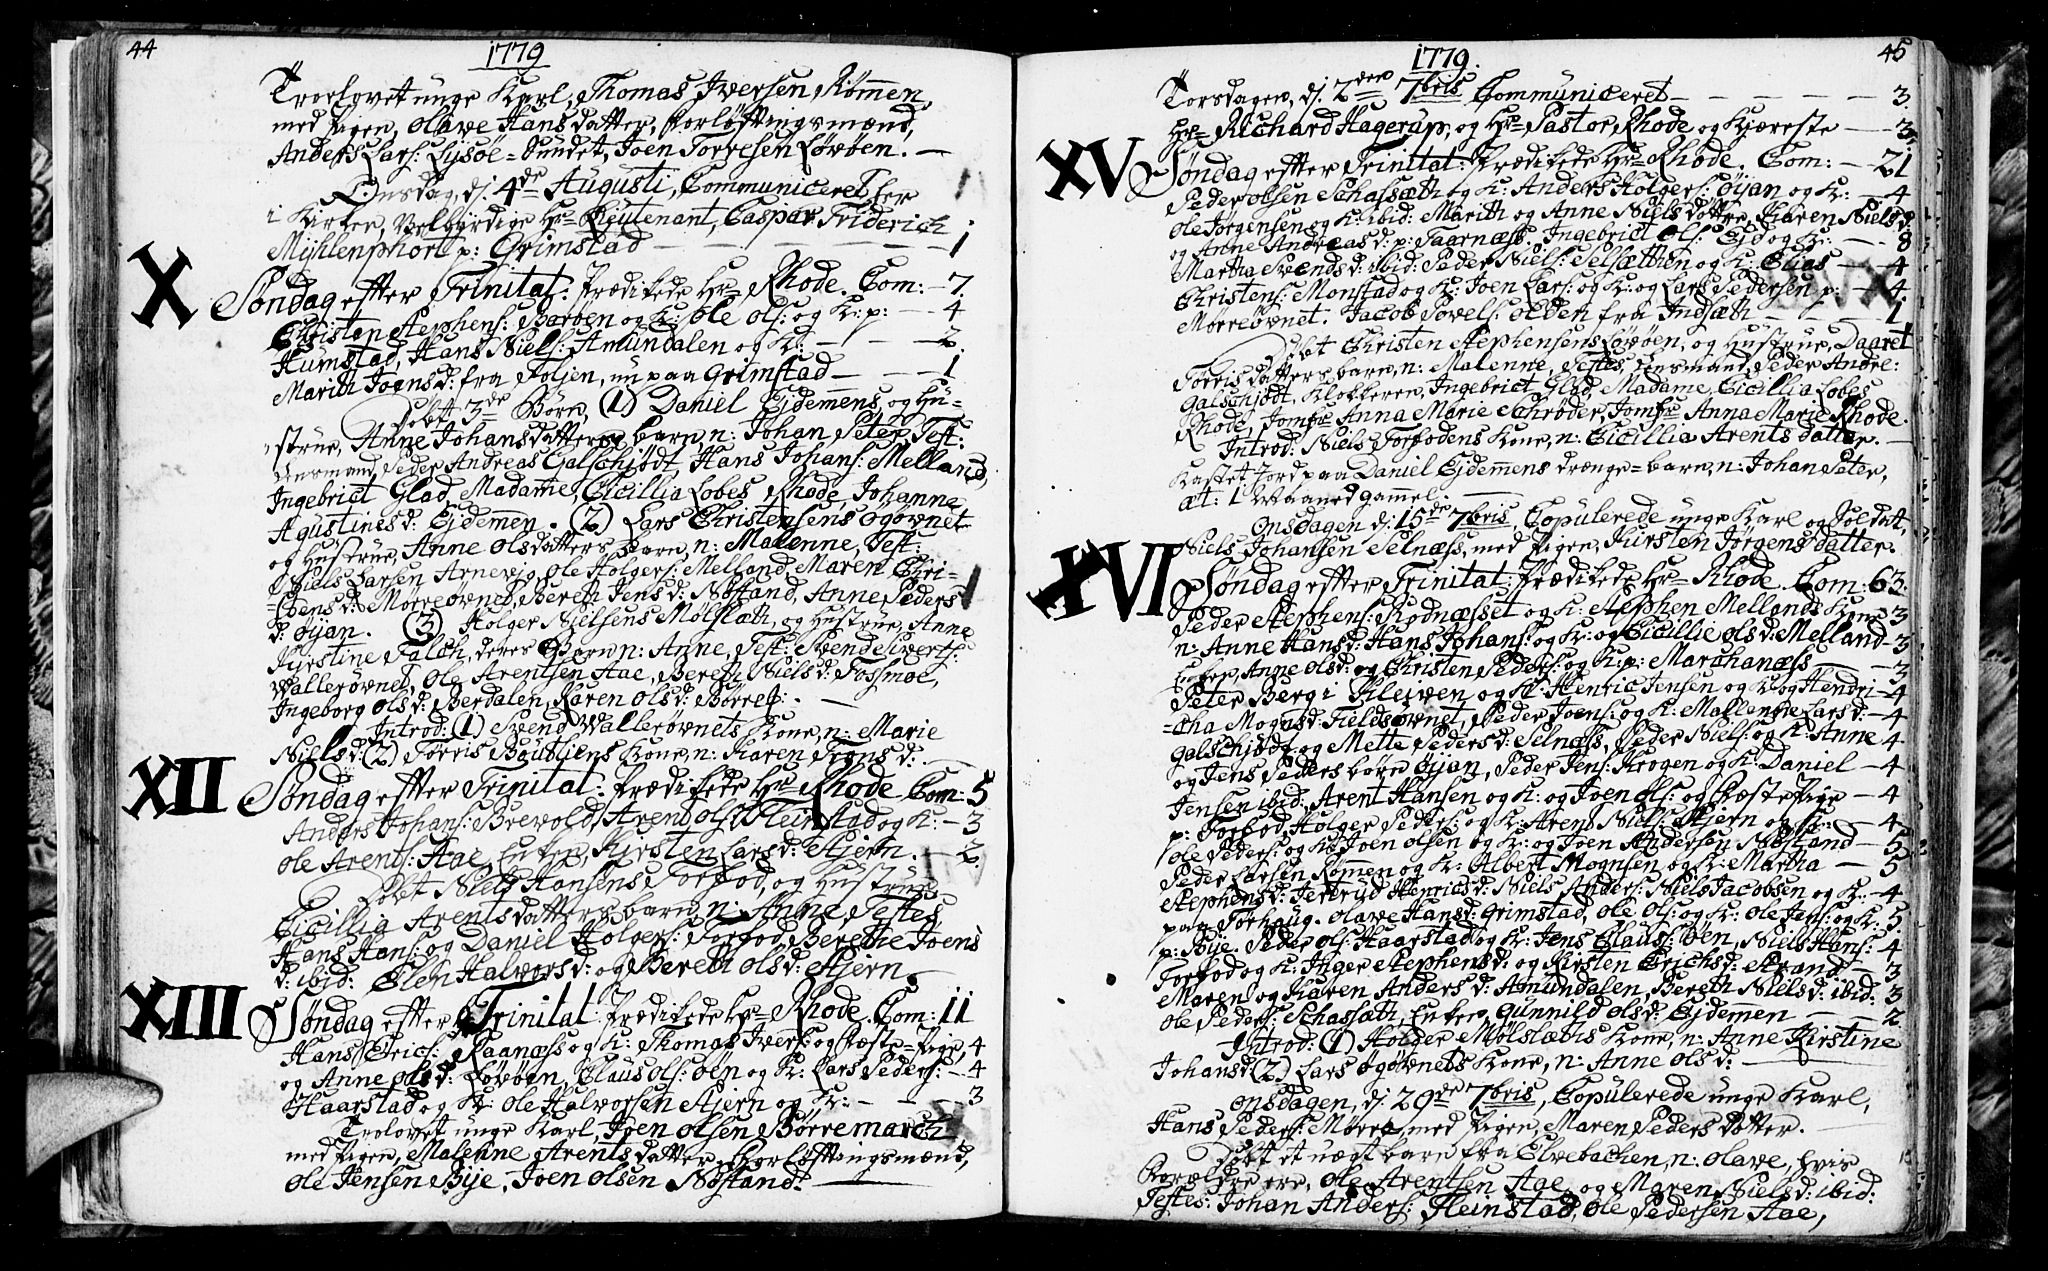 44
1779
Troelovet unge Karl, Thomas Iversen Rømmen,
med Pigen, Olave Hansdatter, Forløftningsmænd,
Anders Lars: Lysøe-Sundet, Joen Torresen Lørøen. —
Onsdag, d: 4de Augusti, Communiceret her
i Kirken, Velbyrdige Hr Lieutenant, Caspar Friderich
Myhlenphort p: Grimstad — 1
X Søndag effter Trinitat: Prædikede Hr Rhode. Com: — 7
Christen Stephens: Børøen og K: Ole Ols: og K: p: — 4
Humstad, Hans Niels: Amundalen og K: — 2
Marith Joensd: fra Foljen, nu paa Grimstad — 1
Døbt 3de Børn (1) Daniel Ejdemens, og Hu-
strue, Anne Johansdatters barn, n: Johan Peter, Test:
Lensmand, Peder Andreas Galschjødt, Hans Johans: Melland,
Ingebrict Glad, Madame, Cicillia Lobes Rhode, Johanne
Agustinesd: Ejdemen. (2) Lars Christensens Øgøvnet
og Hustrue, Anne Olsdatters barn, n: Malenne, Test:
Niels Larsen Arnevig, Ole Holgers: Melland, Maren Chri-
stensd: Mørreøvnet, Bereth Jensd: Nøstand, Anne Peders
d: Øyan. (3) Holger Nielsens Mølslæth, og Hustrue, Anne
Kirstine Falch, deres Barn n: Anne, Test: Svend Siverts:
Wallerøvnet, Ole Arentsen Aae, Bereth Nielsd: Fossmoe,
Ingeborg Olsd: Berdalen, Karen Olsd: Børres: —
Introd: (1) Svend Wallerøvnets Kone, n: Marie
Nielsd: (2) Torris Bøubliens Kone, n: Karen Trønsd: —
XII Søndag effter Trinitat: Prædikede Hr Rhode Com: 5
Anders Johans: Brevold, Arent Ols: Fleinstad og K: — 3
Ole Arents: Aae, Enken, Kirsten Larsd: Stjern. — 2
Døbt Niels Hansens Torfod, og Hustrue
Cicillia Arentsdatters barn, n: Anne, Testes
Hans Hans: og Daniel Holgers: Torfod, Berethe Joens
d: ibid: Elen Halvorsd: og Bereth Olsd: Stjern. —
XIII Søndag effter Trinitat: Prædikede Hr Rhode. Com: 11
Hans Erics: Raanæss og K: Thomas Ivers: og Fæste-Pige, 4
og Anne Olsd: Lørøen, Claus Ols: Øen og K: Lars Peders: — 4
Haarstad og K: Ole Halvorsen Stjern og K: — 3
Trolovet unge Karl, Joen Olsen Børremarch
med Pigen, Malenne Arentsdatter, Forløfftingsmænd,
Ole Jensen Bije, Joen Olsen Nøstand. —
45
1779.
Torsdagen, d: 2den 7bris Communiceret — 3
Hr Richard Hagerup, og Hr Pastor Rhode og Kjæreste — 3
XV Søndag effter Trinitat: Prædikede Hr Rhode. Com: — 21
Peder Olsen Schafsæth og K: Anders Holgers: Øyan og K: — 4
Ole Jørgensen og K: ibid: Marith og Anne Nielsdøttre, Karen Nielsd:
og Anne Andreasd: p: Taarnæss. Ingebrict Ols: Ejd og K: — 8
Martha Svendsd: ibid: Peder Niels: Selsætthen og K: Elias — 4
Christens: Monstad og K: Joen Lars: og K: og Lars Pedersen p: — 4
Mørreøvnet. Jacob Povels: Olden fra Indsæth — 1
Døbt Christen Stephensens Lørøen, og Hustrue, Daaret
Torrisdatters barn, n: Malenne, Testes, Lensmand, Peder Andre:
Galschjødt, Klokkeren, Ingebrict Glad, Madame, Cicillia Lobes
Rhode, Jomfr Anna Marie Schrøder, Jomfr Anna Marie Rhode.
Introd: Niels Torfodens Kone, n: Cicillia Arentsdatter. —
Kastet Jord paa Daniel Ejdemens drænge-barn, n: Johan Peter,
æt: 1 Maaned gammel. —
Onsdagen d: 15de 7bris, Copulerede unge Karl og Soldat,
Niels Johansen Selnæss, med Pigen, Kirsten Jørgensdatter.
XVI Søndag effter Trinitat: Prædikede Hr Rhode. Com: 63.
Peder Stephens: Rødnæsset og K: Stephen Mellands Kone 3
n: Anne Hansd: Hans Johans: og K: og Cicillie Olsd: Melland — 3
Enken, Anne Olsd: og Christen Peders: og K: p: Marchanæss — 3
Peter Berg i Kleiven og K: Henric Jensen og K: og Hendri- — 4
cha Mognsd: Fieldsøvnet, Peder Joens: og K: Mallenne Larsd: — 4
Galschjødt, og Mette Pedersd: Selnæss, Peder Niels: og K: Anne 4
og Jens Peders børn Øyan, Peder Jens: Krogen og K: Daniel — 4
Jensen ibid, Arent Hansen og K: og Joen Ols: og Fæste Pige — 4
p: Torfod, Holger Peders: og K: Arent Niels: Stjern og K: — 4
Ole Peders: og K: Joen Olsen og K: og Joen Andersen Nøstand — 5
Peder Larsen Rømmen og K: Albert Mognsen og K: Martha — 5
Stephensd: Jertrud Henricsd: Niels Anders: Niels Jacobsen og K: — 4
paa Torhaug. Olave Hansd: Grimstad, Ole Ols: og K: Ole Jens: og K: 5
p: Bije. Peder Ols: Haarstad og K: Jens Claus: Øen, Niels Hans: 4
Torfod og K: Inger Stephensd: og Kirsten Erichsd: Strand — 3
Maren og Karen Andersd: Amundalen, Bereth Nielsd: ibid: 3
Ole Peders: Schafsæth, Enken, Gunnild Olsd: Ejdemen — 2
Introd: (1) Holder Mølslæths Kone, n: Anne Kirstine
Johansd: (2) Lars Øgøvnets Kone, n: Anne Olsd: —
Onsdagen, d: 29de 7bris, Copulerede unge Karl,
Hans Peders: Mørre, med Pigen, Maren Pedersdatter. —
Døbt et uægt barn fra Elvebachen, n: Olave, hvis
Forældre ere, Ole Arentsen Aae, og Maren Nielsd: ibid:
Testes: Johan Anders: Fleinstad, Ole Pedersen Aae,